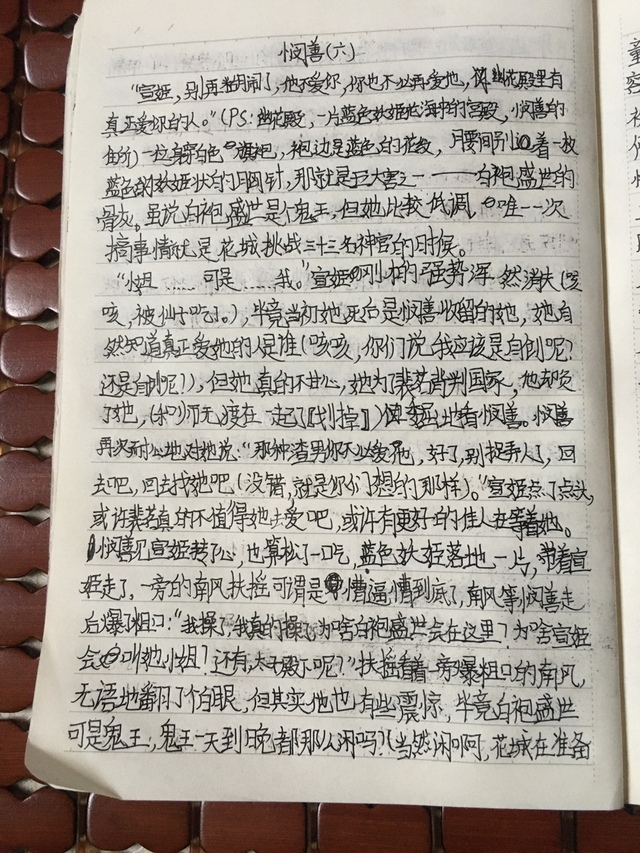 悯善(六)
“宣姬，别再胡闹了，他不爱你，你也不必再爱他，幽花殿里有
真正爱你的人。”(PS:幽花殿，一片蓝色妖姬花海中的宫殿，悯善的
住所)一位身穿白色旗袍，袍边是蓝色的花纹，月要间别着一枚
蓝色的妖姬状的月匈针，那就是五大害之一——白袍盛世的
骨灰。虽说白袍盛世是个鬼王，但她比较低调，唯一一次
搞事情就是花城挑战三十三名神官的时候。
“小姐……可是……我。”宣姬刚才的强势浑然消失(咳
咳，被仙子吃了。)，毕竟当初她死后是悯善收留的她，她自
然知道真正爱她的人是谁(咳咳，你们说我应该是自倒呢?
还是自倒呢?)，但她真的不甘心，她为了裴茗背判国家，他却负
了她，(和师无渡在一起了【划掉】)倔强地看悯善。悯善
再次耐心地对她说：“那种渣男你不必爱他，好了，别捉弄人了，回
去吧，回去找她吧(没错，就是你们想的那样)。”宣姬点了点头，
或许裴茗真的不值得她去爱吧，或许有更好的佳人在等着她。
悯善见宣姬转了心，也算松了一口气，蓝色妖姬落地一片，带着宣
姬走了，一旁的南风扶摇可谓是懵逼懵到底了，南风等悯善走
后爆了粗口：“我操了，我真的操了，为啥白袍盛世会在这里?为啥宣姬
会叫她小姐?还有，太子殿下呢?”扶摇看着一旁爆粗口的南风，
无语地翻了个白眼，但其实他也有些震惊，毕竟白袍盛世
可是鬼王，鬼王一天到晚都那么闲吗?(当然闲啊，花城在准备